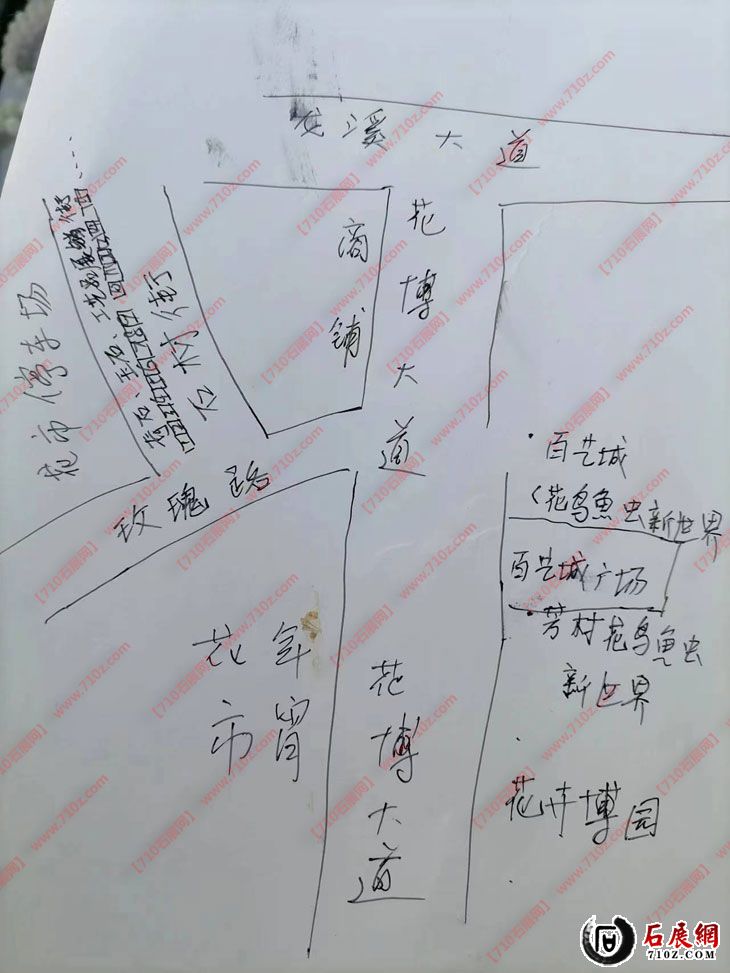 龙溪大道
花博大道
商铺
花市停车场
石村街
玫瑰路
百艺城
（花鸟魚虫新世界
百艺城广场
芳村花鸟魚虫
新世界
年宵
花市
花博大道
花卉博园
【710石展网】www.710z.com
石展網
710Z.COM